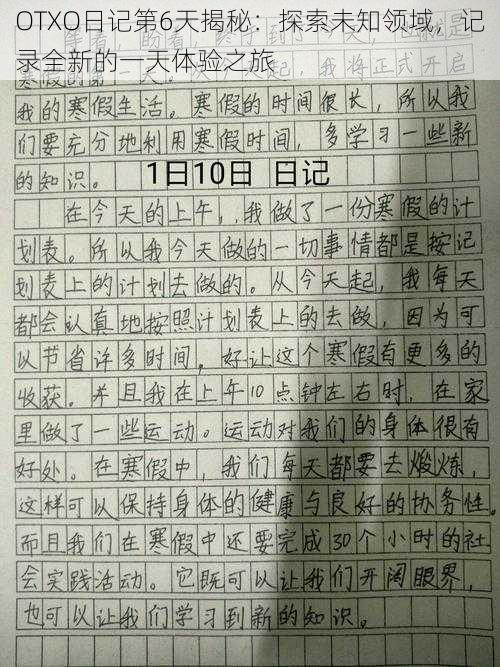 OTXO日记第6天揭秘：探索未知领域，记
录全新的一天体验之旅
我的寒假生活。寒假的时间很长，所以我
们要充分地利用寒假时间，多学习一些新
的知识。
1日10日 日记
在今天的上午，我做了一份寒假的计
划表。所以我今天做的一切事情都是按记
划表上的计划去做的。从今天起，我每天
都会认真地按照计划表上的去做，因为可
以节省许多时间，好让这个寒假有更多的
收获。并且我在上午10点钟左右时，在家
里做了一些运动。运动对我们的身体很有
好处。在寒假中，我们每天都要去煅炼，
这样可以保持身体的健康与良好的协务性。
而且我们在寒假中还要完成30个小时的社
会实践活动。它既可以让我们开阔眼界，
也可以让我们学习到新的知识。